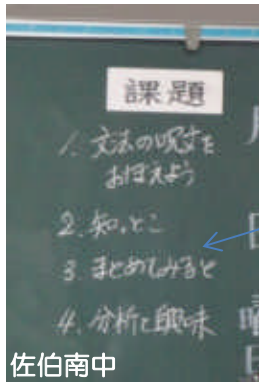 課題
1. 文法の呪文を
おぼえよう
2. 知っとこ
3. まとめてみると
4. 分析と興味
佐伯南中